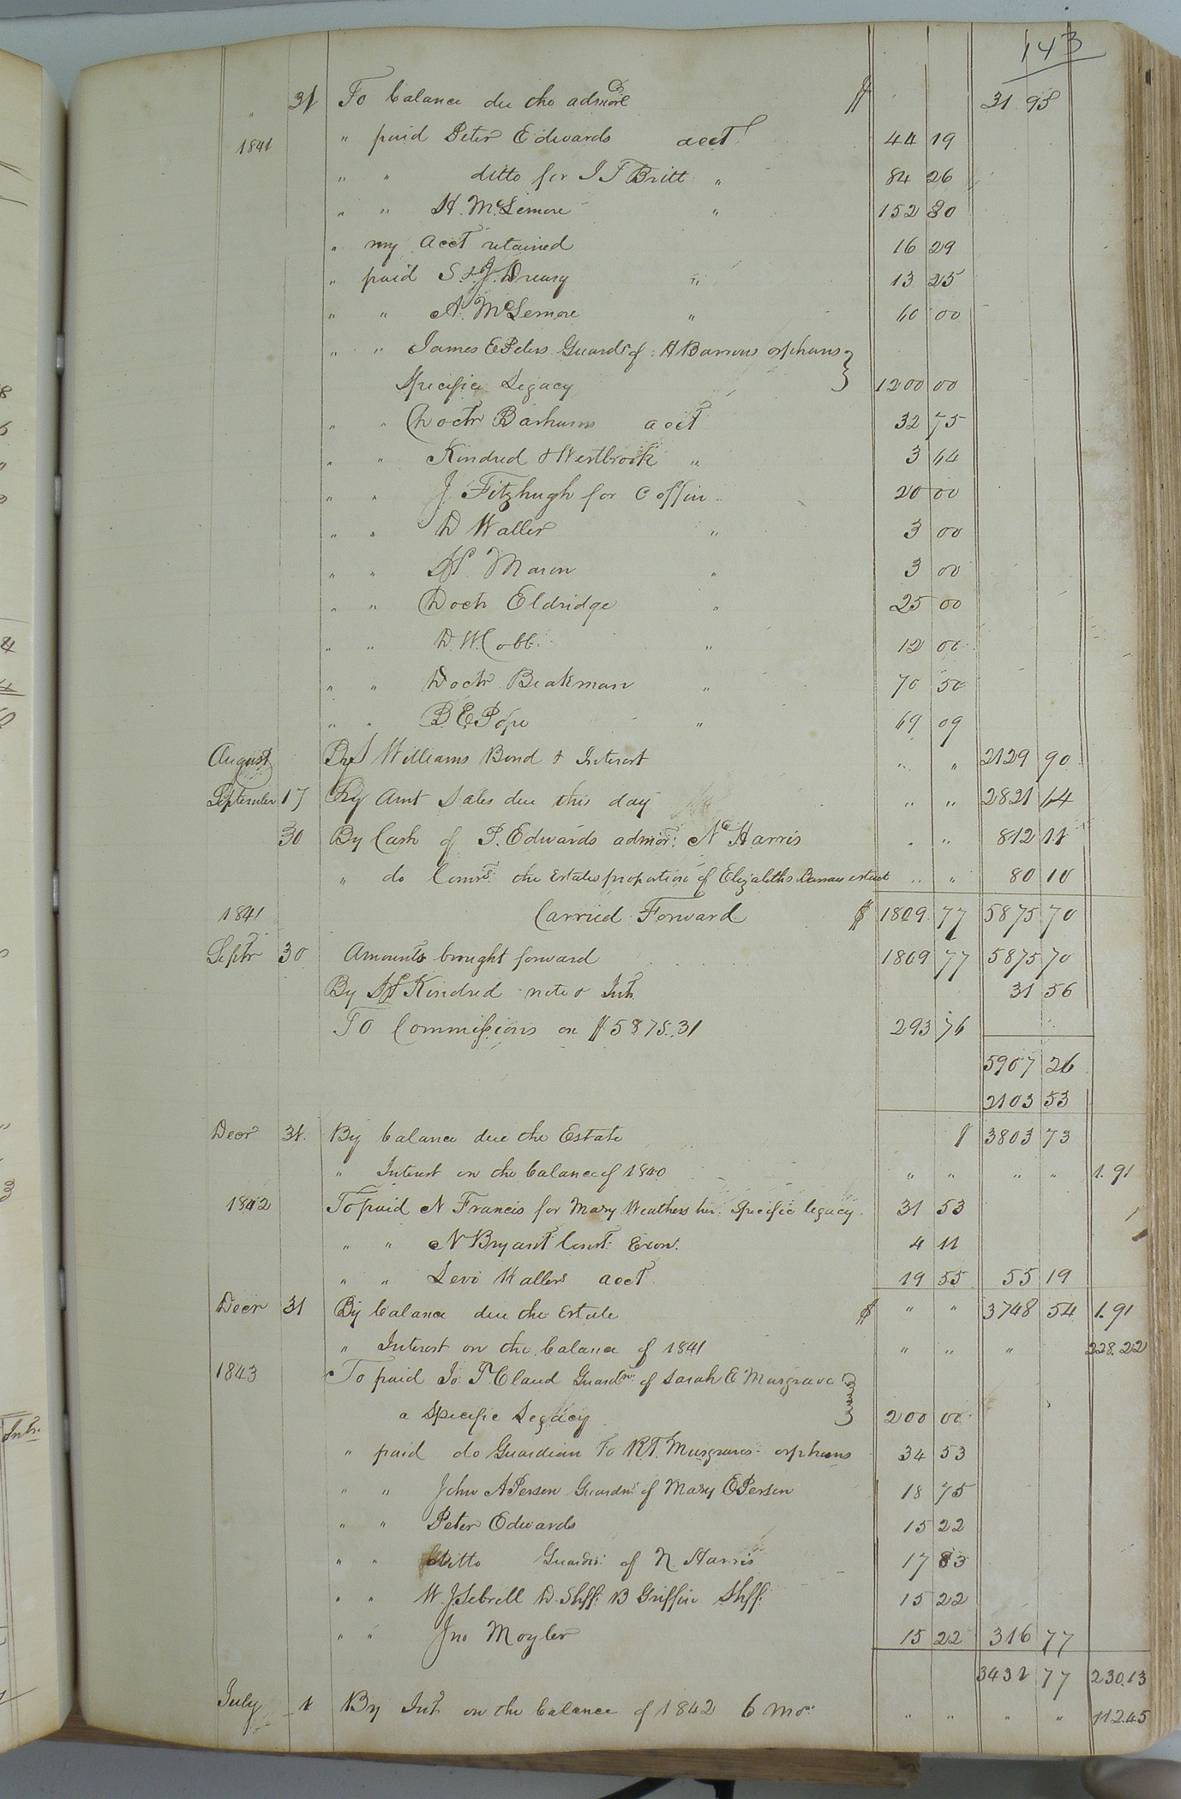 143
31 To balance due the admors $ 31 98
1841 " paid Peter Edwards acct 44 19
" " ditto for J T Britt " 84 26
" " H. McLemore " 152 80
" my acct retained 16 29
" paid S. & J. Dreury " 13 25
" " A. McLemore " 60 00
" " James E Peters Guardn of A Barrows orphans
Specific Legacy 1200 00
" " Doctr Barhams acct 32 75
" " Kindred & Westbrook " 3 64
" " J. Fitzhugh for Coffin 20 00
" " D Waller " 3 00
" " Mason " 3 00
" " Doctr Eldridge " 25 00
" " D. W. Cobb " 12 00
" " Doctr Beakman " 70 50
" " B. E Pope " 69 09
August By J Williams Bond & Interest " " 2129 90
September 17 By Amt Sales due this day " " 2821 64
30 By Cash of P. Edwards admor: Harris " " 812 11
" do Comrs the Estates proportion of Elizabeths estate " " 80 10
1841 Carried Forward $ 1809 77 5875 70
Septr 30 Amounts brought forward 1809 77 5875 70
By Kindred note & Int 31 56
To Commissions on $5875.31 293 76
5907 26
2103 53
Decr 31. By balance due the Estate $ 3803 73
" Interest on the balance of 1840 " " " " 1.91
1842 To paid N Francis for Mary Weathers her Specific legacy 31 53
" " N Bryant Const. Exon. 4 11
" " Levi Wallers acct 19 55 55 19
Decr 31 By balance due the Estate $ " " 3748 54 1.91
" Interest on the balance of 1841 " " " 228.22
1843 To paid Jo. P Claud Guardn of Sarah E Musgrave
a Specific Legacy 200 00
" paid do Guardian to R. T. Musgraves orphans 34 53
" " John A Person Guardn of Mary E Person 18 75
" " Peter Edwards 15 22
" " Ditto Guardn of N. Harris 17 83
" " W. J. Sebrell D. Shff. B Griffin Shff. 15 22
" " Jno Moyler 15 22 316 77
3431 77 230.13
July 1 By Int on the balance of 1842 6 mos " " " " 112.45
Intr.